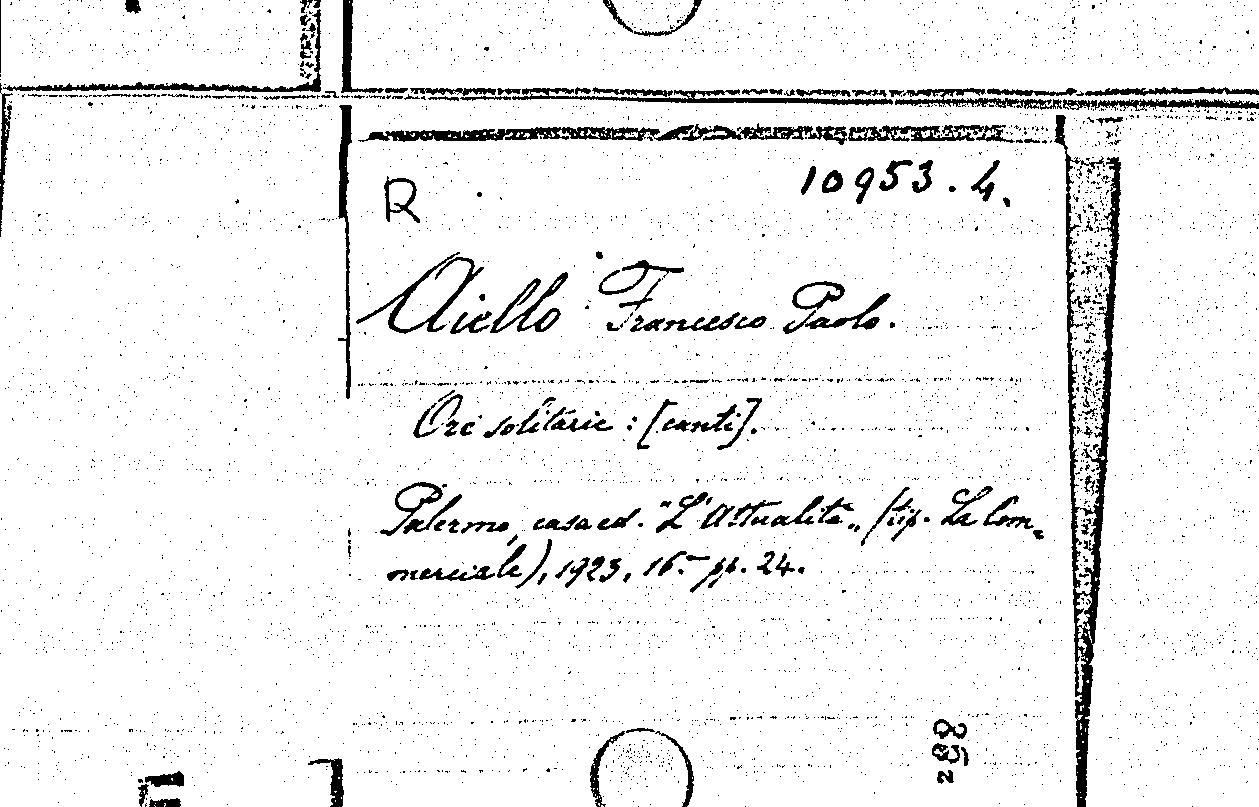 R
10953.4.
Aiello Francesco Paolo.
Ore solitarie : [canti].
Palermo, casa ed. "L'Attualità„ (tip. La Com-
merciale), 1923, 16.° pp. 24.